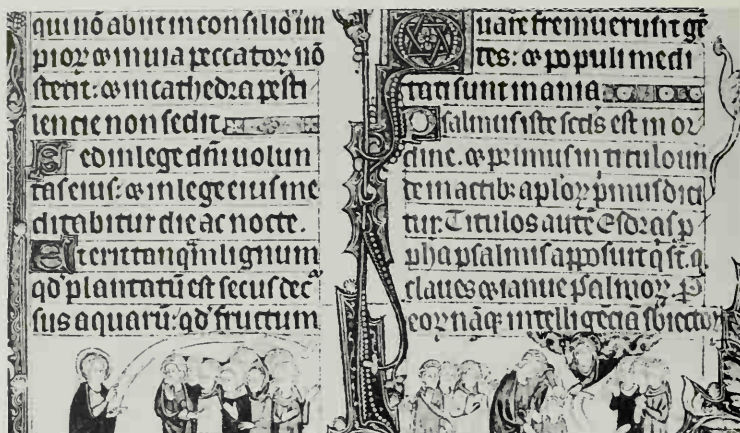 qui nō abiit in consilio īm
pioꝝ ⁊ in uia peccatoꝝ nō
stetit: ⁊ in cathedra pesti
lencie non sedit
Sed in lege dn̄i uolun
tas eius: ⁊ in lege eius me
ditabitur die ac nocte.
Et erit tanqm̄ lignum
qd' plantatū est secus dec
sus aquarū: qd' fructum
Quare fremuerunt gē
tes: ⁊ populi medi
tati sunt inania
Psalmus iste scds est in or
dine. ⁊ primus in titulo un
te in actibꝫ aploꝝ pmus dici
tur. Titulos autē Esdras p
pha psalmis apposuit q̄ st. q.
claues ⁊ ianue psalmoꝝ. P
eoꝝ nāqꝫ intelligēciā sbiectoꝝ